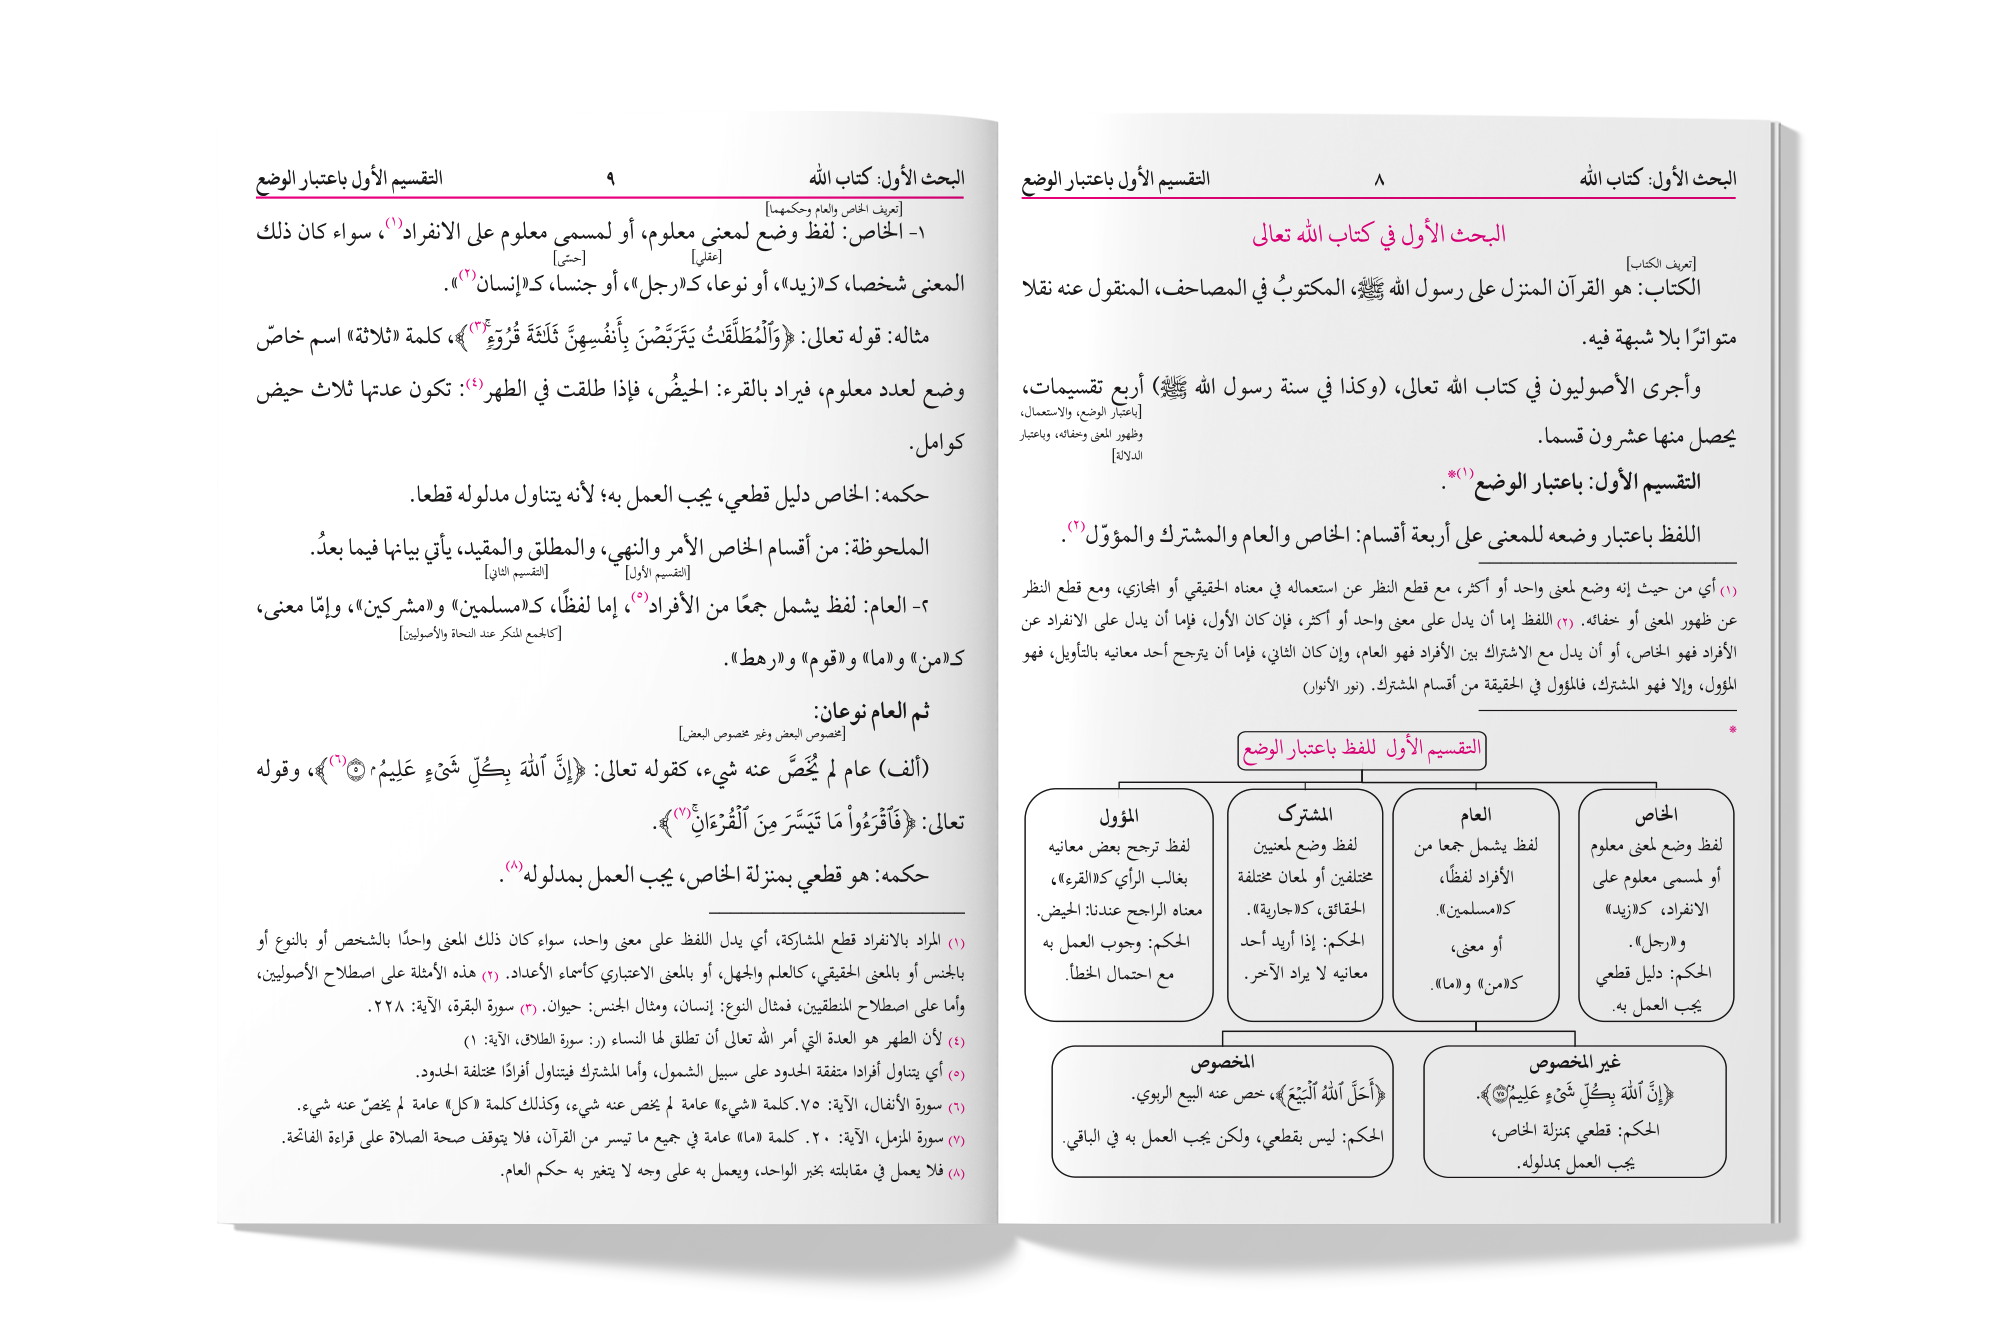 البحث الأول: كتاب الله ٨ التقسيم الأول باعتبار الوضع
البحث الأول في كتاب الله تعالى
[تعريف الكتاب]
الكتاب: هو القرآن المنزل على رسول الله ﷺ، المكتوبُ في المصاحف، المنقول عنه نقلا
متواترًا بلا شبهة فيه.
وأجرى الأصوليون في كتاب الله تعالى، (وكذا في سنة رسول الله ﷺ) أربع تقسيمات،
[باعتبار الوضع، والاستعمال،
وظهور المعنى وخفائه، وباعتبار
الدلالة]
يحصل منها عشرون قسما.
التقسيم الأول: باعتبار الوضع(١)*.
اللفظ باعتبار وضعه للمعنى على أربعة أقسام: الخاص والعام والمشترك والمؤوّل(٢).
(١) أي من حيث إنه وضع لمعنى واحد أو أكثر، مع قطع النظر عن استعماله في معناه الحقيقي أو المجازي، ومع قطع النظر
عن ظهور المعنى أو خفائه. (٢) اللفظ إما أن يدل على معنى واحد أو أكثر، فإن كان الأول، فإما أن يدل على الانفراد عن
الأفراد فهو الخاص، أو أن يدل مع الاشتراك بين الأفراد فهو العام، وإن كان الثاني، فإما أن يترجح أحد معانيه بالتأويل، فهو
المؤول، وإلا فهو المشترك، فالمؤول في الحقيقة من أقسام المشترك. (نور الأنوار)
*
التقسيم الأول للفظ باعتبار الوضع
الخاص
لفظ وضع لمعنى معلوم
أو لمسمى معلوم على
الانفراد، كـ«زيد»
و«رجل».
الحكم: دليل قطعي
يجب العمل به.
العام
لفظ يشمل جمعا من
الأفراد لفظًا،
كـ«مسلمين».
أو معنى،
كـ«من» و«ما».
المشترك
لفظ وضع لمعنيين
مختلفين أو لمعان مختلفة
الحقائق، كـ«جارية».
الحكم: إذا أريد أحد
معانيه لا يراد الآخر.
المؤول
لفظ ترجح بعض معانيه
بغالب الرأي كـ«القرء»،
معناه الراجح عندنا: الحيض.
الحكم: وجوب العمل به
مع احتمال الخطأ.
غير المخصوص
﴿إِنَّ ٱللَّهَ بِكُلِّ شَىۡءٍ عَلِيمُۢ ٧٥﴾.
الحكم: قطعي بمنزلة الخاص،
يجب العمل بمدلوله.
المخصوص
﴿أَحَلَّ ٱللَّهُ ٱلۡبَيۡعَ﴾، خص عنه البيع الربوي.
الحكم: ليس بقطعي، ولكن يجب العمل به في الباقي.
البحث الأول: كتاب الله ٩ التقسيم الأول باعتبار الوضع
[تعريف الخاص والعام وحكمهما]
١- الخاص: لفظ وضع لمعنى معلوم، أو لمسمى معلوم على الانفراد(١)، سواء كان ذلك
[عقلي] [حسّى]
المعنى شخصا، كـ«زيد»، أو نوعا، كـ«رجل»، أو جنسا، كـ«إنسان(٢)».
مثاله: قوله تعالى: ﴿وَٱلۡمُطَلَّقَٰتُ يَتَرَبَّصۡنَ بِأَنفُسِهِنَّ ثَلَٰثَةَ قُرُوٓءٖۚ(٣)﴾، كلمة «ثلاثة» اسم خاصّ
وضع لعدد معلوم، فيراد بالقرء: الحيضُ، فإذا طلقت في الطهر(٤): تكون عدتها ثلاث حيض
كوامل.
حكمه: الخاص دليل قطعي، يجب العمل به؛ لأنه يتناول مدلوله قطعا.
الملحوظة: من أقسام الخاص الأمر والنهي، والمطلق والمقيد، يأتي بيانها فيما بعدُ.
[التقسيم الأول] [التقسيم الثاني]
٢- العام: لفظ يشمل جمعًا من الأفراد(٥)، إما لفظًا، كـ«مسلمين» و«مشركين»، وإمّا معنى،
[كالجمع المنكر عند النحاة والأصوليين]
كـ«من» و«ما» و«قوم» و«رهط».
ثم العام نوعان:
[مخصوص البعض وغير مخصوص البعض]
(ألف) عام لم يُخَصَّ عنه شيء، كقوله تعالى: ﴿إِنَّ ٱللَّهَ بِكُلِّ شَىۡءٍ عَلِيمُۢ ٥(٦)﴾، وقوله
تعالى: ﴿فَٱقۡرَءُواْ مَا تَيَسَّرَ مِنَ ٱلۡقُرۡءَانِۚ(٧)﴾.
حكمه: هو قطعي بمنزلة الخاص، يجب العمل بمدلوله(٨).
(١) المراد بالانفراد قطع المشاركة، أي يدل اللفظ على معنى واحد، سواء كان ذلك المعنى واحدًا بالشخص أو بالنوع أو
بالجنس أو بالمعنى الحقيقي، كالعلم والجهل، أو بالمعنى الاعتباري كأسماء الأعداد. (٢) هذه الأمثلة على اصطلاح الأصوليين،
وأما على اصطلاح المنطقيين، فمثال النوع: إنسان، ومثال الجنس: حيوان. (٣) سورة البقرة، الآية: ٢٢٨.
(٤) لأن الطهر هو العدة التي أمر الله تعالى أن تطلق لها النساء (ر: سورة الطلاق، الآية: ١)
(٥) أي يتناول أفرادا متفقة الحدود على سبيل الشمول، وأما المشترك فيتناول أفرادًا مختلفة الحدود.
(٦) سورة الأنفال، الآية: ٧٥. كلمة «شيء» عامة لم يخص عنه شيء، وكذلك كلمة «كل» عامة لم يخصّ عنه شيء.
(٧) سورة المزمل، الآية: ٢٠. كلمة «ما» عامة في جميع ما تيسر من القرآن، فلا يتوقف صحة الصلاة على قراءة الفاتحة.
(٨) فلا يعمل في مقابلته بخبر الواحد، ويعمل به على وجه لا يتغير به حكم العام.